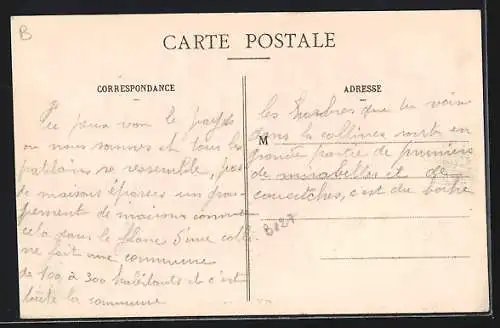 B
CARTE POSTALE
CORRESPONDANCE
Tu peux voir le pays
ou nous sommes et tous les
patelins se ressemble, pas
de maisons éparses un grou-
pement de maisons comme
cela dans le flanc d'une colli
ne fait une commune
de 100 à 300 habitants et c'est
toute la commune
ADRESSE
les harbres que tu vois
M
dans la colline sont en
grande partie de pruniers
de mirabelles et de
couetches, c'est du boche